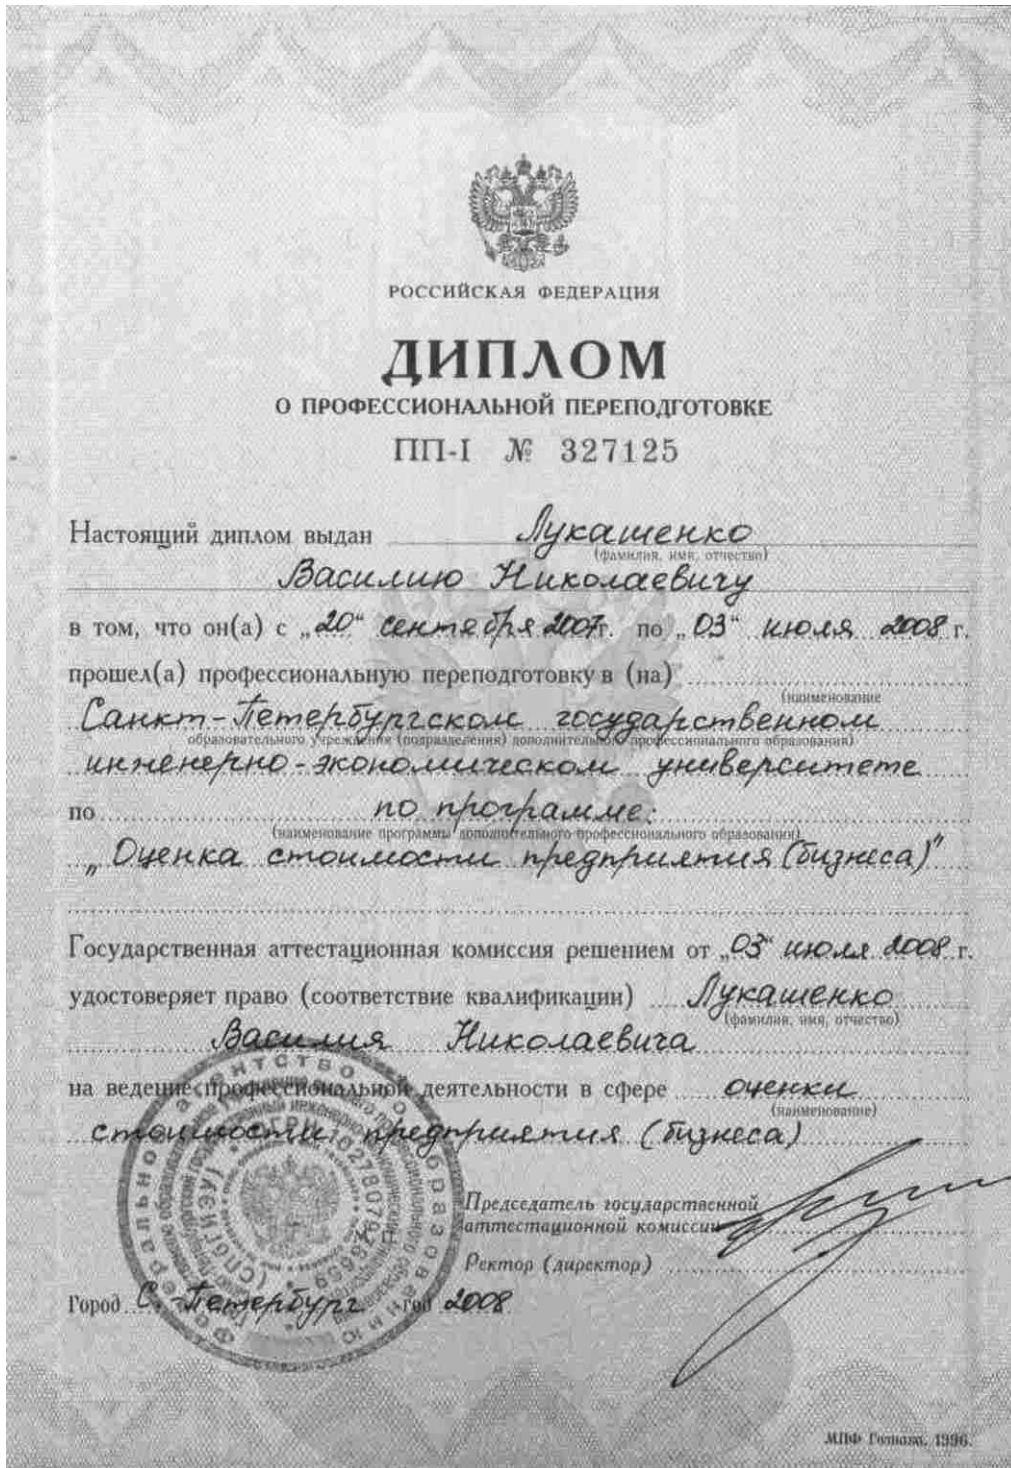 РОССИЙСКАЯ ФЕДЕРАЦИЯ
ДИПЛОМ
О ПРОФЕССИОНАЛЬНОЙ ПЕРЕПОДГОТОВКЕ
ПП-I № 327125
Настоящий диплом выдан Лукашенко
(фамилия, имя, отчество)
Василию Николаевичу
в том, что он(а) с „20“ сентября 2007г. по „03“ июля 2008 г.
прошел(а) профессиональную переподготовку в (на)
(наименование
Санкт-Петербургском государственном
образовательного учреждения (подразделения) дополнительного профессионального образования)
инженерно-экономическом университете
по по программе:
(наименование программы дополнительного профессионального образования)
„Оценка стоимости предприятия (бизнеса)”
Государственная аттестационная комиссия решением от „03“ июля 2008 г.
удостоверяет право (соответствие квалификации) Лукашенко
(фамилия, имя, отчество)
Василия Николаевича
на ведение профессиональной деятельности в сфере оценки
(наименование)
стоимости предприятия (бизнеса)
Председатель государственной
аттестационной комиссии
Ректор (директор)
Город С.-Петербург год 2008
Федеральное агентство по образованию
(СПбГИЭУ)
МПФ Гознака. 1996.